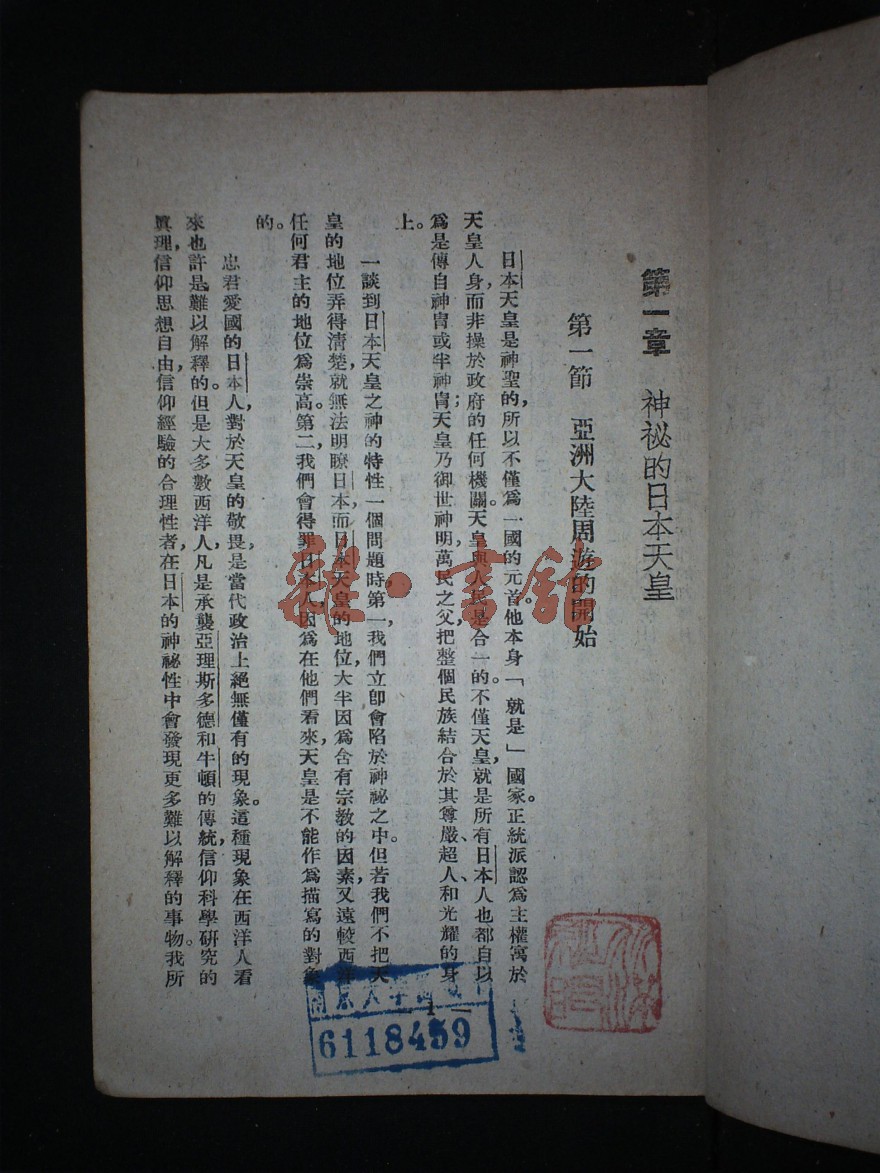 第一章　神祕的日本天皇
第一節　亞洲大陸周遊的開始
日本天皇是神聖的，所以不僅為一國的元首。他本身「就是」國家。正統派認為主權寓於
天皇人身，而非操於政府的任何機關。天皇與人民是合一的。不僅天皇，就是所有日本人也都自以
為是傳自神冑或半神冑；天皇乃御世神明，萬民之父，把整個民族結合於其尊嚴、超人和光耀的身
上。
一談到日本天皇之神的特性一個問題時，第一，我們立卽會陷於神祕之中。但若我們不把天
皇的地位弄得清楚，就無法明瞭日本，而日本天皇的地位，大半因為含有宗教的因素，又遠較西洋
任何君主的地位為崇高。第二，我們會得罪日本人，因為在他們看來，天皇是不能作為描寫的對象
的。
忠君愛國的日本人，對於天皇的敬畏，是當代政治上絕無僅有的現象。這種現象在西洋人看
來也許是難以解釋的。但是大多數西洋人，凡是承襲亞理斯多德和牛頓的傳統，信仰科學研究的
眞理，信仰思想自由，信仰經驗的合理性者，在日本的神祕性中會發現更多難以解釋的事物。我所
1
南京大學圖
6118459